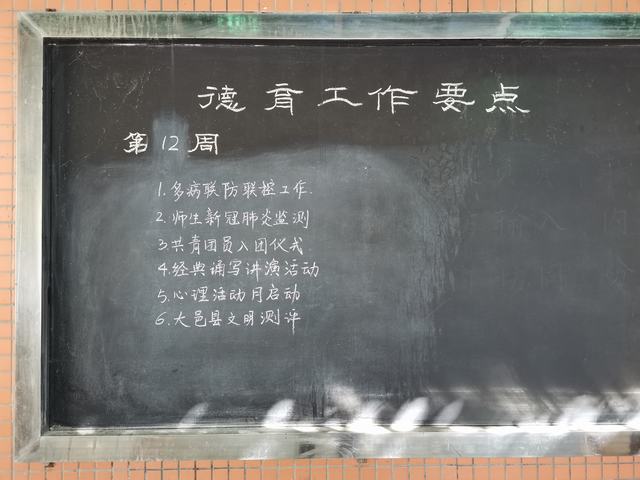 德育工作要点
第12周
1.多病联防联控工作.
2.师生新冠肺炎监测
3.共青团员入团仪式
4.经典诵写讲演活动
5.心理活动月启动
6.大邑县文明测评
输入 内